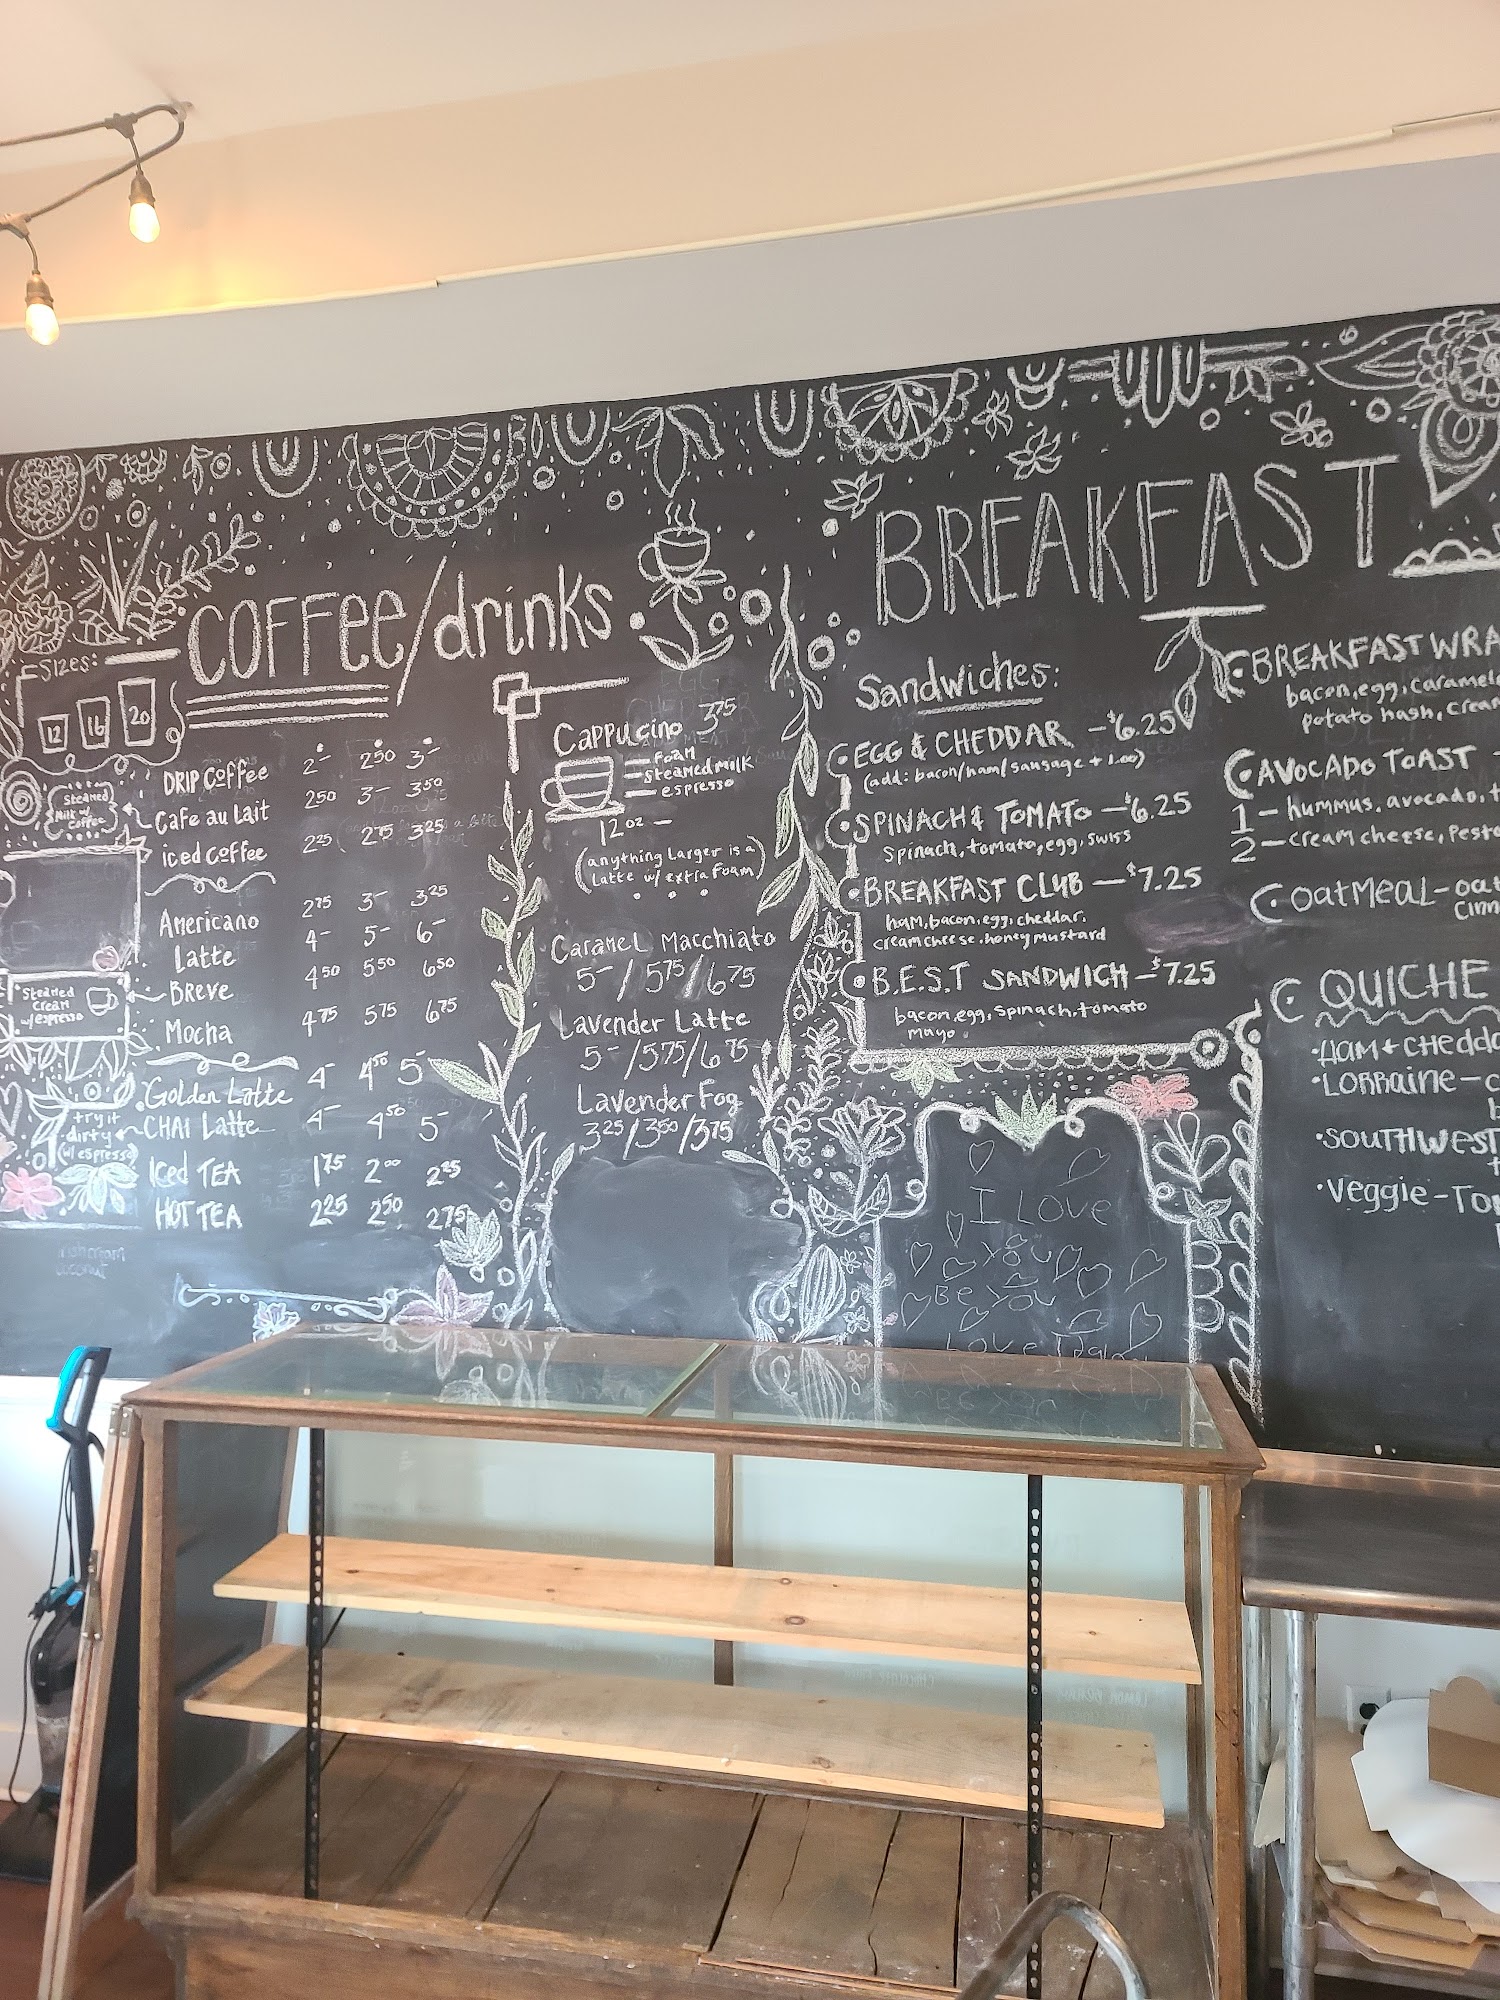 COFFEE/drinks
SIZES:
12 16 20
DRIP COFFEE 2- 2.50 3-
Steamed
Milk w/
Coffee
Cafe au Lait 2.50 3- 3.50
iced Coffee 2.25 2.75 3.25
Americano 2.75 3- 3.25
Latte 4- 5- 6-
Steamed
Cream
w/espresso
BREVE 4.50 5.50 6.50
Mocha 4.75 5.75 6.75
Golden Latte 4- 4.50 5-
try it
dirty
(w/espresso)
CHAI Latte 4- 4.50 5-
Iced TEA 1.75 2.00 2.25
HOT TEA 2.25 2.50 2.75
Cappucino 3.75
foam
steamed milk
espresso
12 oz -
(anything Larger is a
Latte w/ extra foam)
Caramel Macchiato
5-/5.75/6.75
Lavender Latte
5-/5.75/6.75
Lavender Fog
3.25/3.50/3.75
BREAKFAST
Sandwiches:
EGG & CHEDDAR -$6.25
(add: bacon/ham/sausage + 1.00)
SPINACH & TOMATO -$6.25
spinach, tomato, egg, swiss
BREAKFAST CLUB -$7.25
ham, bacon, egg, cheddar,
cream cheese, honey mustard
B.E.S.T SANDWICH -$7.25
bacon, egg, spinach, tomato
mayo
I Love
You
Be You
Love
BREAKFAST WRA
bacon, egg, caramel
potato hash, crea
AVOCADO TOAST
1- hummus, avocado, t
2- cream cheese, pesto
OATMEAL- oa
cinn
QUICHE
•HAM + CHEDDA
•LORRAINE-
•SOUTHWEST
•Veggie- To